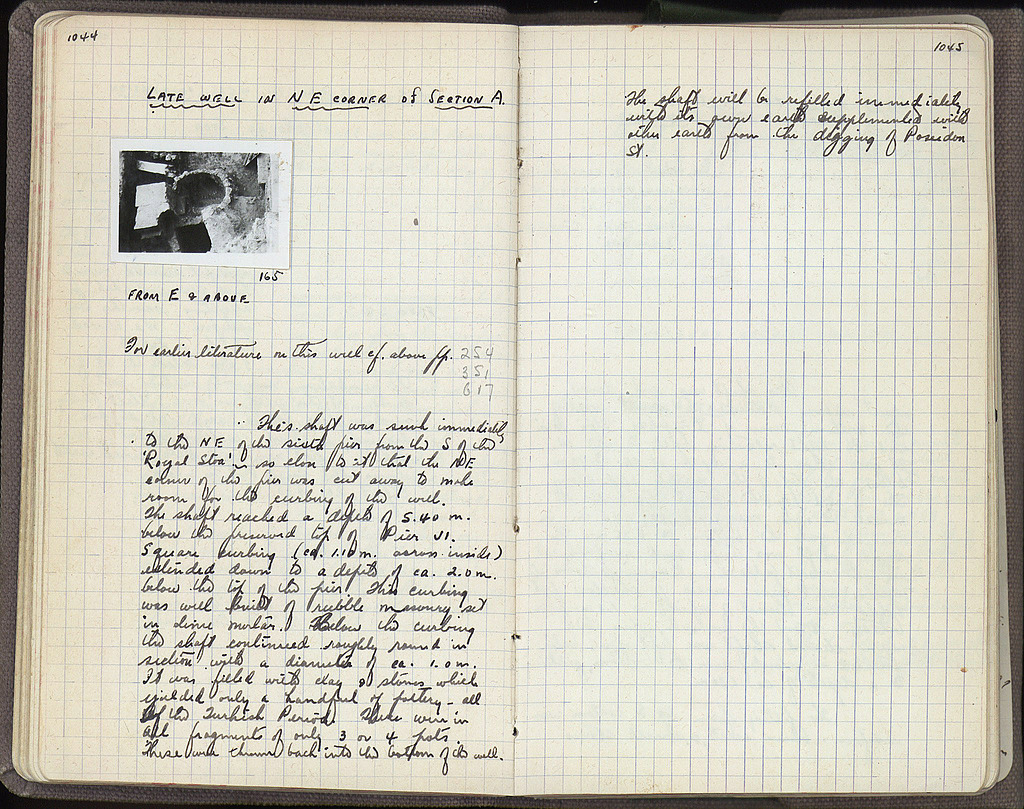 1044
LATE WELL IN NE CORNER OF SECTION A.
165
FROM E & ABOVE
For earlier literature on this well cf. above pp. 254
351
617
This shaft was sunk immediately
to the NE of the sixth pier from the S of the
'Royal Stoa' - so close to it that the NE
corner of the pier was cut away to make
room for the curbing of the well.
The shaft reached a depth of 5.40 m.
below the preserved top of Pier VI.
Square curbing (ca. 1.10 m. across inside)
extended down to a depth of ca. 2.0 m.
below the top of the pier. This curbing
was well built of rubble masonry set
in lime mortar. Below the curbing
the shaft continued roughly round in
section with a diameter of ca. 1.0 m.
It was filled with clay & stones which
yielded only a handful of pottery - all
of the Turkish Period. There were in
all fragments of only 3 or 4 pots.
These were thrown back into the bottom of the well.
1045
The shaft will be refilled immediately
with its own earth supplemented with
other earth from the digging of Poseidon
St.